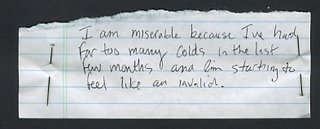 I am miserable because I've had
far too many colds in the last
few months and I'm starting to
feel like an invalid.